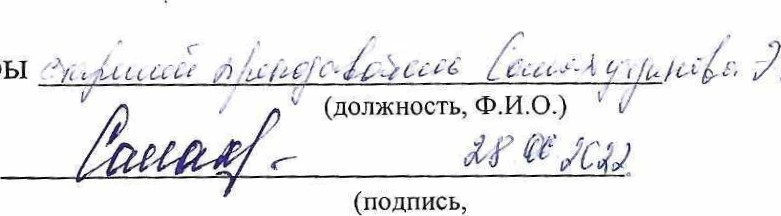 ры старший преподаватель Самахудинова Э.
(должность, Ф.И.О.)
28 2022
(подпись,